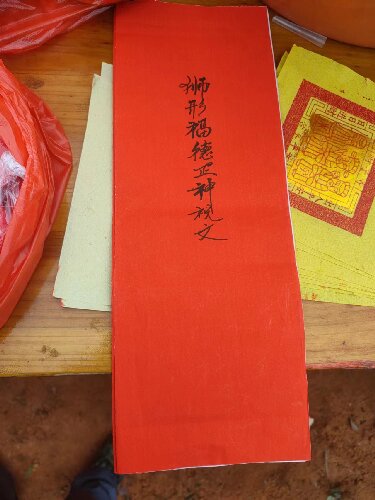 狮形福德正神祝文